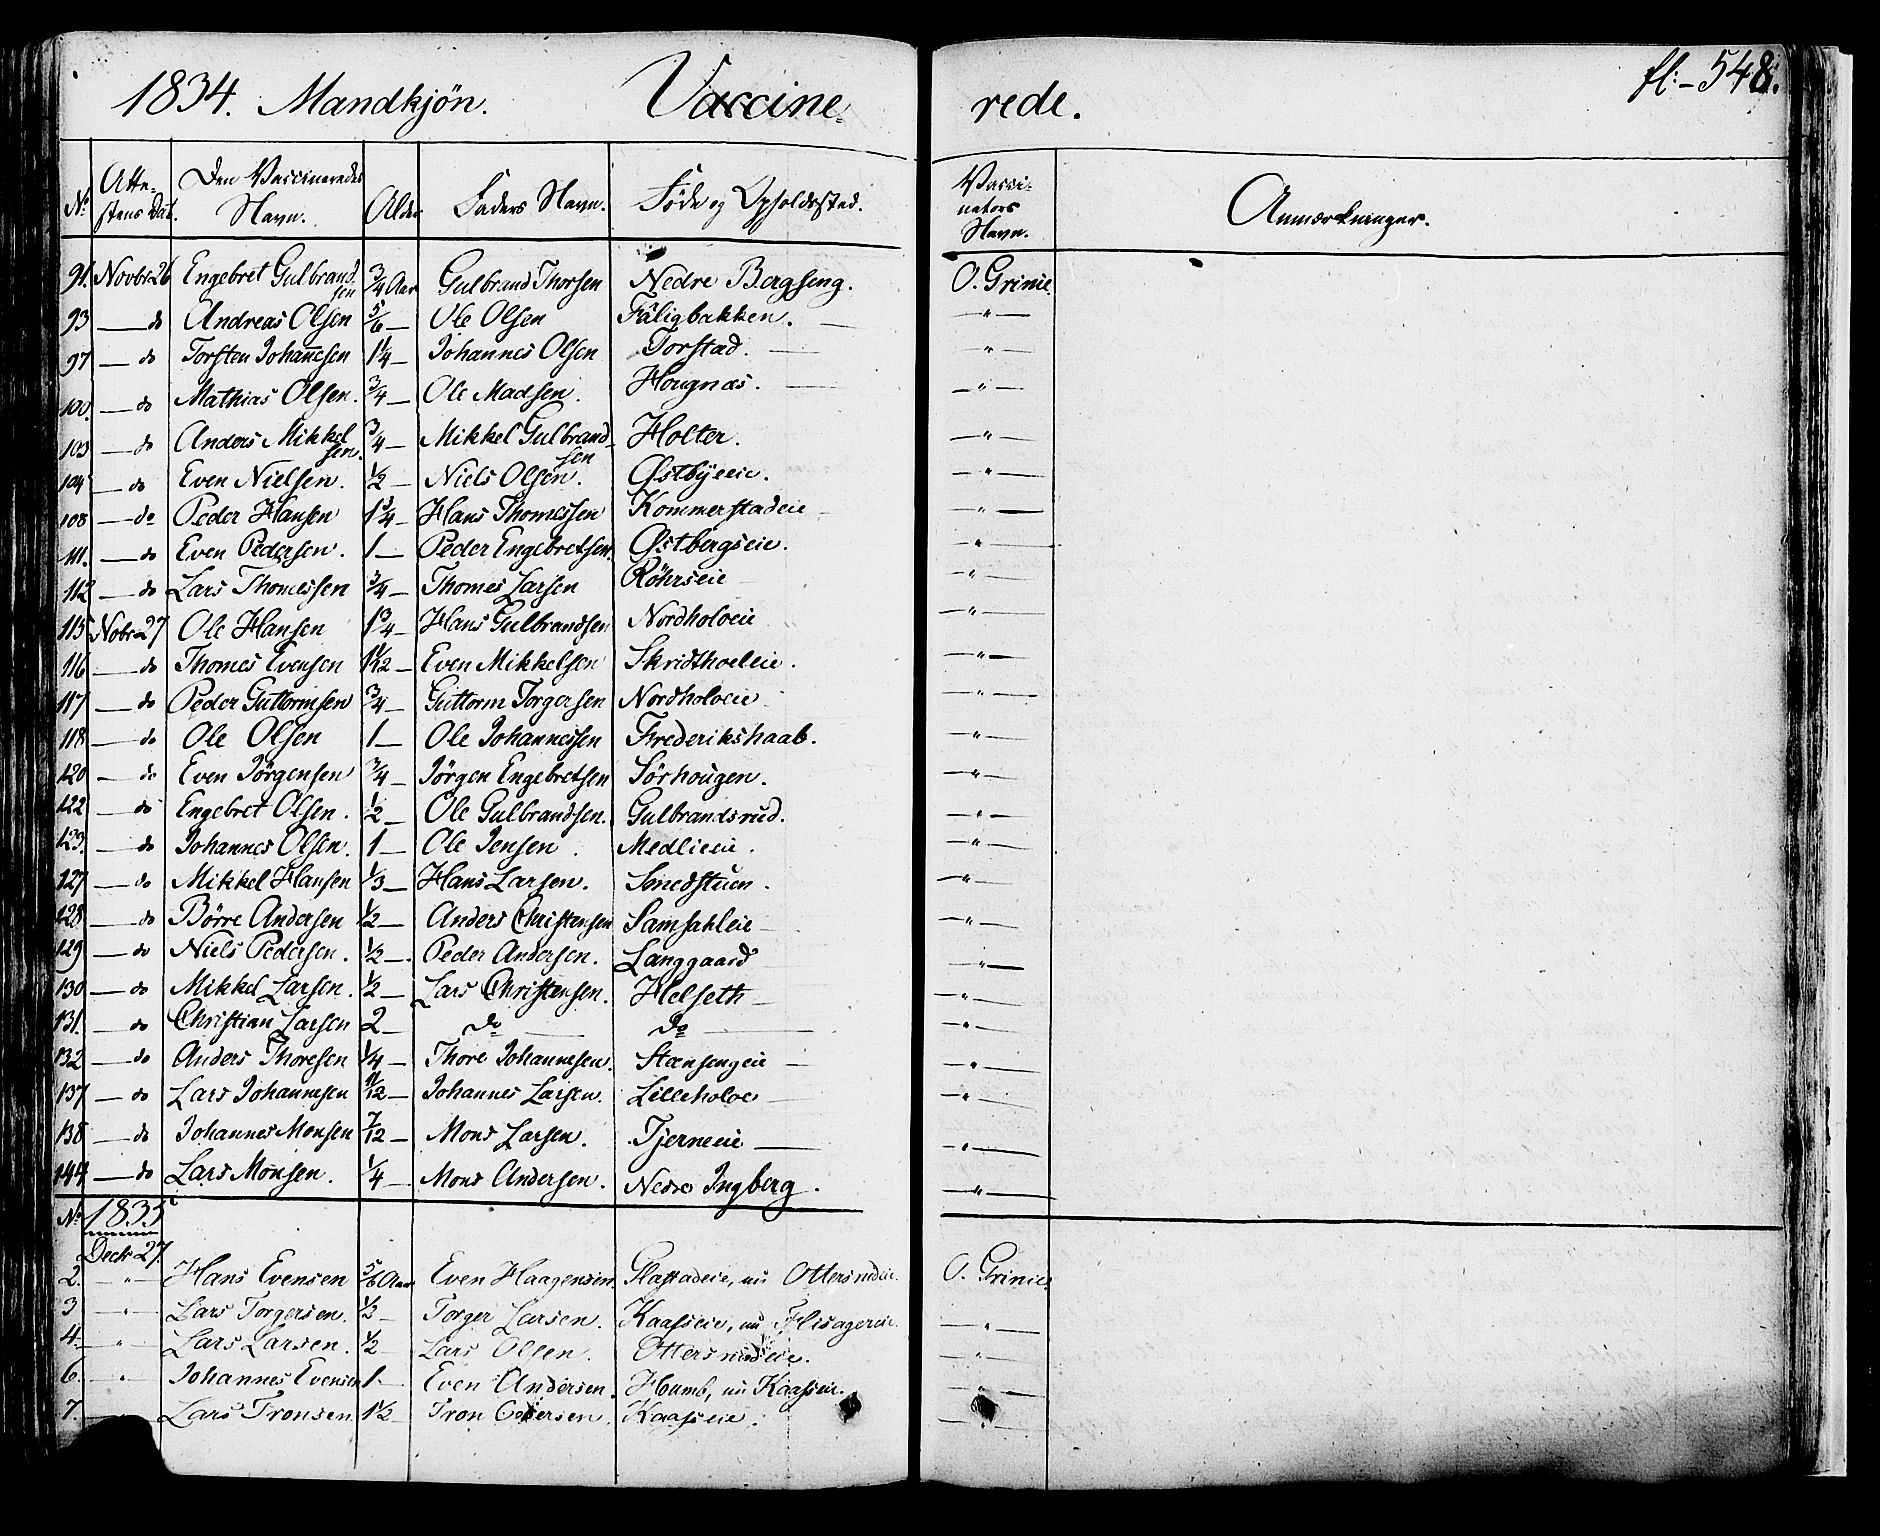 1834. Mandkjön. Vaccine= rede. fl:-548.
No Atte=stens Dat. Den Vaccineredes Navn. Alder Faders Navn. Föde og Opholdssted. Vacci=nators Navn. Anmærkninger.
91. Novbr 26 Engebret Gulbrandsen 3/4 Aar Gulbrand Thorsen Nedre Bergseng. O. Grinie.
93 — do Andreas Olsen 5/6 — Ole Olsen Fäligbakken. — " —
97 — do Torsten Johanesen 1 1/4 — Johannes Olsen Torstad. — " —
100. — do Mathias Olsen. 3/4 — Ole Madsen. Hougnæs. — " —
103 — do Anders Mikkelsen. 3/4 — Mikkel Gulbrandsen Holter. — " —
104 — do Even Nielsen. 1/2 — Niels Olsen. Østbÿeie. — " —
108 — do Peder Hansen 1 3/4 — Hans Thomessen Kommerstadeie — " —
111. — do Even Pedersen. 1 — Peder Engebretsen. Østbergseie. — " —
112 — do Lars Thomessen 3/4 — Thomes Larsen Röhrseie — " —
115 Nobr 27 Ole Hansen 1 3/4 — Hans Gulbrandsen Nordholoeie — " —
116 — do Thomes Evensen 1 1/12 — Even Mikkelsen Skridthoeleie. — " —
117 — do Peder Guttormsen 3/4 — Guttorm Torgersen Nordholoeie — " —
118 — do Ole Olsen 1 — Ole Johannessen Frederikshaab. — " —
120 — do Even Jörgensen 3/4 — Jörgen Engebretsen Sörhougen. — " —
122 — do Engebret Olsen. 1/2 — Ole Gulbrandsen. Gulbrandsrud. — " —
123. — do Johannes Olsen. 1 — Ole Jensen. Medlieeie. — " —
127 — do Mikkel Hansen 1/3 — Hans Larsen. Smedstuen. — " —
128 — do Börre Andersen 1/2 — Anders Christensen Samsahleie — " —
129 — do Niels Pedersen. 1/2 — Peder Andersen. Langgaard — " —
130 — do Mikkel Larsen. 1/2 — Lars Christensen. Helseth — " —
131. — do Christian Larsen 2 — do — do — " —
132 — do Anders Thoresen 1/4 — Thore Johannesen. Stensengeie — " —
137 — do Lars Johannesen 9/12 — Johannes Larsen. Lilleholoe — " —
138 — do Johannes Monsen 7/12 — Mons Larsen. Tjerneeie — " —
144 — do Lars Monsen. 1/4 — Mons Andersen. Nedre Ingberg. — " —
No 1835
Decbr 27.
2. — " — Hans Evensen 5/6 Aar Even Haagensen. Plastadeie, nu Ottersrudeie. O. Grinie.
3 — " — Lars Torgersen. 1/2 — Torger Larsen. Kaasseie, nu Flisagereie. — " —
4. — " — Lars Larsen. 1/2 — Lars Olsen. Ottersrudeie. — " —
6. — " — Johannes Evensen 1 — Even Andersen. Humb, nu Kaasseie. — " —
7. — " — Lars Tronsen 1 1/2 — Tron Kaasseie. — " —